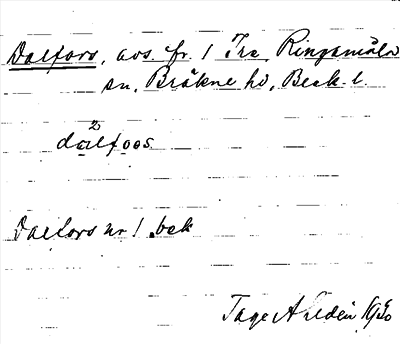 Dalfors, avs. fr. 1 Tre, Ringamåla
sn, Bräkne hd, Blek. l.
2
dalfoos
Dalfors nr 1 bek
Tage Ahldén 1930